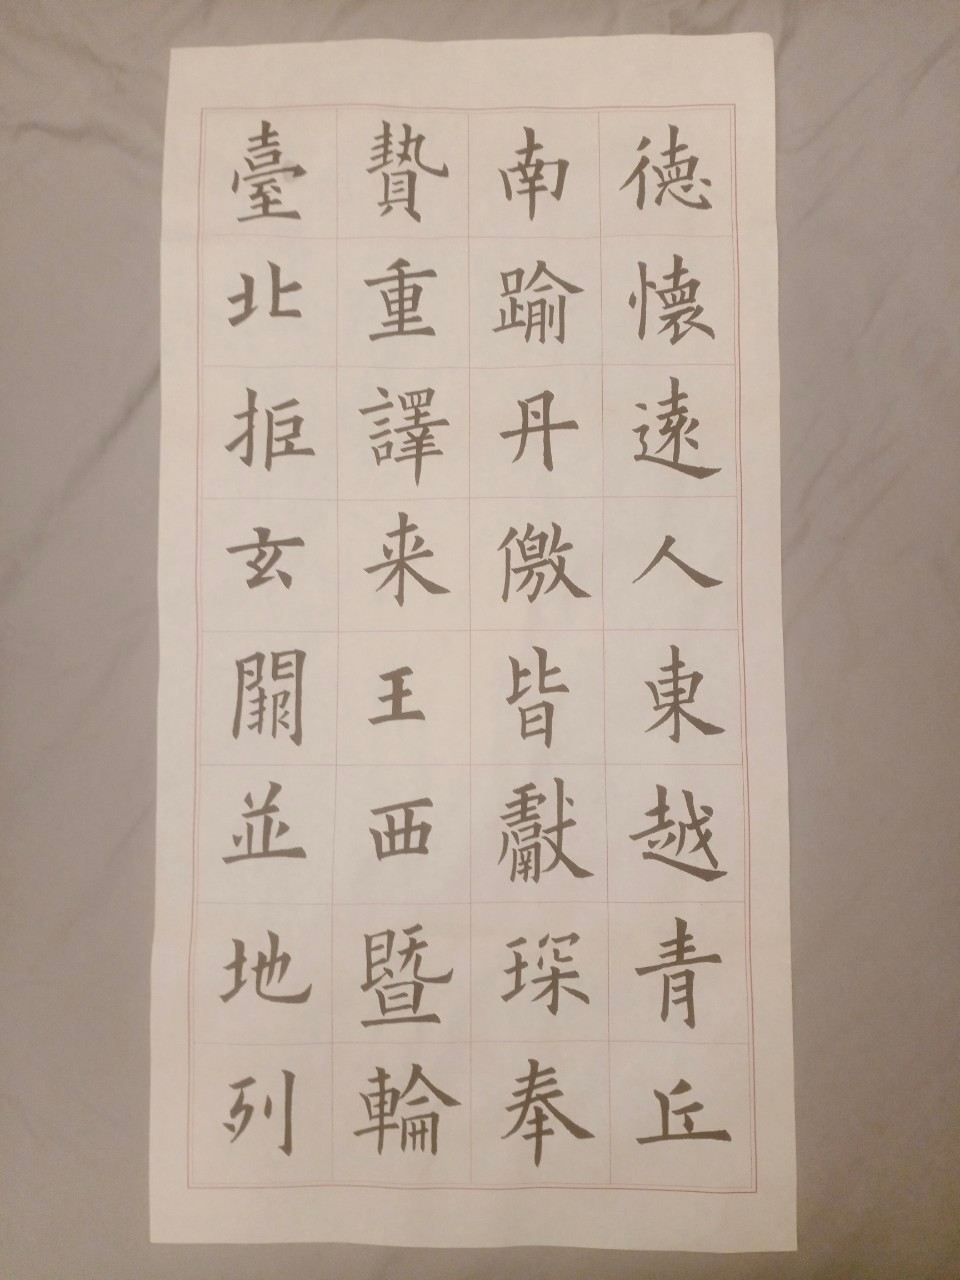 德懷遠人東越青丘
南踰丹徼皆獻琛奉
贄重譯来王西暨輪
臺北拒玄闕並地列